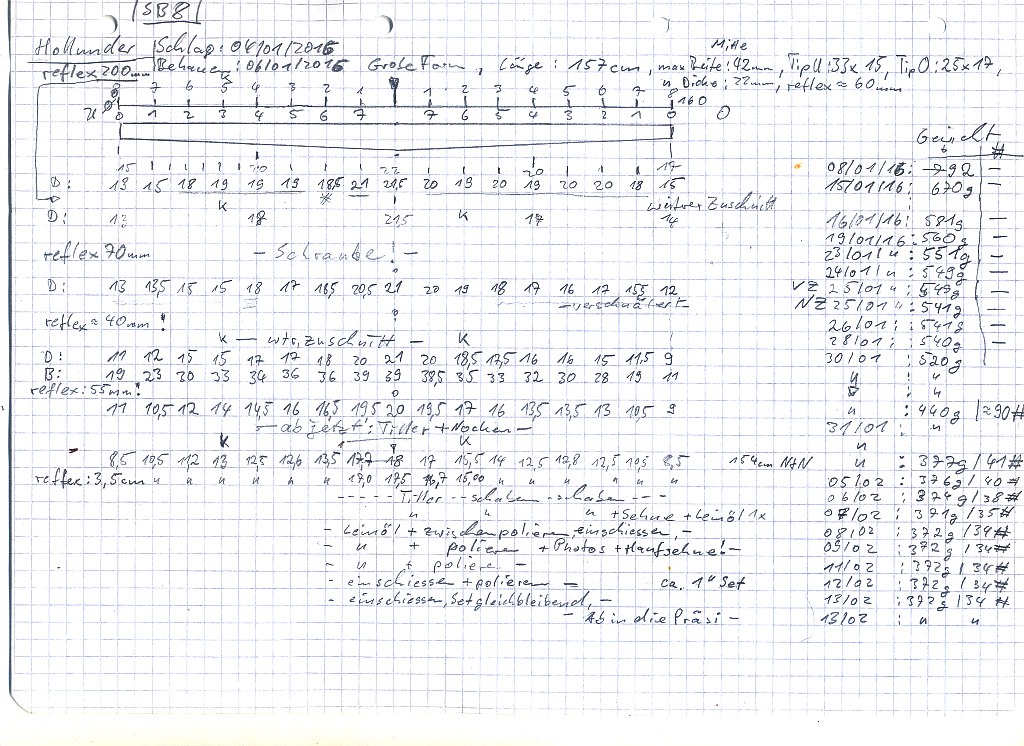 SB8
Hollunder Schlag: 04/01/2016 Mitte
reflex 200mm Behauen: 06/01/2016 Grobe Form, Länge: 157cm, max Breite: 42mm, TipU: 33x15, TipO: 25x17,
" Dicke: 22mm, reflex ≈ 60mm
K K
8 7 6 5 4 3 2 1 1 2 3 4 5 6 7 8
160
U 0 1 2 3 4 5 6 7 7 6 5 4 3 2 1 0 O
Gewicht #
15 20 22 20 17 08/01/16: 792 —
D: 13 15 18 19 19 19 18,5 21 21,5 20 19 20 19 20 20 18 15 15/01/16: 670g —
# K weitrer Zuschnitt
D: 13 18 21,5 K 17 14 16/01/16: 581g —
19/01/16: 560g —
reflex 70mm — Schraube! — 23/01/": 551g —
24/01/": 549g —
D: 13 13,5 15 15 18 17 18,5 20,5 21 20 19 18 17 16 17 15,5 12 VZ 25/01 ": 549g —
— verschnäbert NZ 25/01 ": 541g —
reflex ≈ 40mm! 26/01: 541g —
K — wtr. Zuschnitt — K 28/01: 540g —
D: 11 12 15 15 17 17 18 20 21 20 18,5 17,5 16 16 15 11,5 9 30/01: 520g
B: 19 23 30 33 34 36 36 39 39 38,5 35 33 32 30 28 19 11 " : "
reflex: 55mm! " : "
11 10,5 12 14 14,5 16 16,5 19,5 20 19,5 17 16 13,5 13,5 13 10,5 9 " : 440g | ≈90#
— ab jetzt: Tiller + Nocken — 31/01 : "
K K "
8,5 10,5 11,2 13 12,5 12,6 13,5 17,7 18 17 15,5 14 12,5 12,8 12,5 10,5 8,5 154cm NzN " : 377g / 41#
reflex: 3,5cm " " " " " " 17,0 17,5 16,7 15,00 " " " " " " 05/02 : 376g / 40#
- - - - - Tiller - - schaben - schaben - - - 06/02 : 374g / 38#
" " " + Sehne + Leinöl 1x 07/02 : 371g / 35#
— Leinöl + zwischenpolieren, einschiessen, — 08/02 : 372g / 34#
— " + polieren + Photos + Hanfsehne! — 09/02 : 372g / 34#
— " + poliere — 11/02 : 372g / 34#
— einschiessen + polieren — ca. 1" Set 12/02 : 372g / 34#
— einschiessen, Set gleichbleibend, — 13/02 : 372g / 34#
— Ab in die Präsi — 13/02 : " "